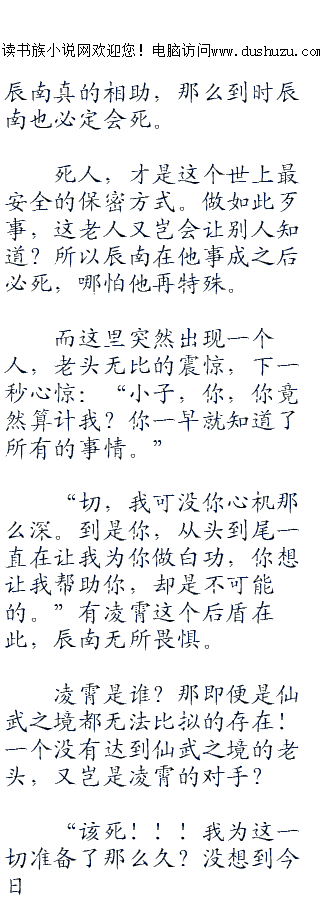 读书族小说网欢迎您！电脑访问www.dushuzu.com
辰南真的相助，那么到时辰
南也必定会死。
死人，才是这个世上最
安全的保密方式。做如此歹
事，这老人又岂会让别人知
道？所以辰南在他事成之后
必死，哪怕他再特殊。
而这里突然出现一个
人，老头无比的震惊，下一
秒心惊：“小子，你，你竟
然算计我？你一早就知道了
所有的事情。”
“切，我可没你心机那
么深。到是你，从头到尾一
直在让我为你做白功，你想
让我帮助你，却是不可能
的。”有凌霄这个后盾在
此，辰南无所畏惧。
凌霄是谁？那即便是仙
武之境都无法比拟的存在！
一个没有达到仙武之境的老
头，又岂是凌霄的对手？
“该死！！！我为这一
切准备了那么久？没想到今
日